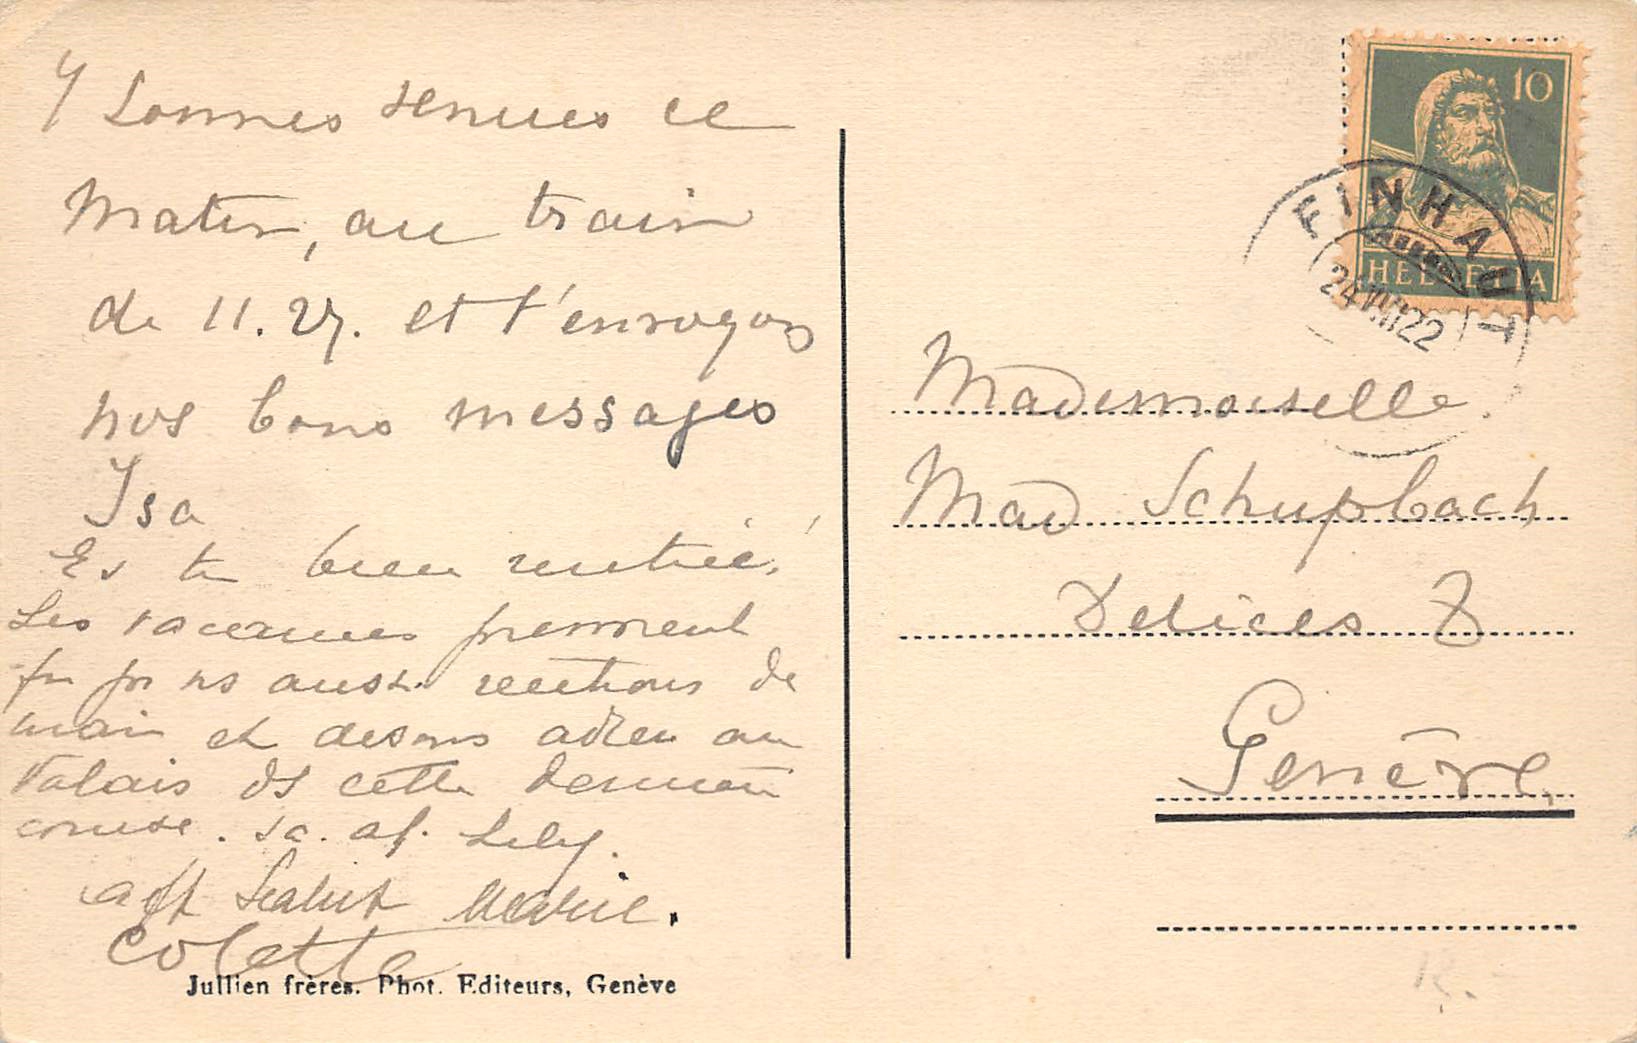 Y sommes venues ce
matin, au train
de 11.27. et t'envoyons
nos bons messages
Isa
Es tu bien rentrée,
Les vacances prennent
fin pr ns aussi rentrons de
main et disons adieu au
Valais ds cette dernière
course. sc. af. Lily.
aff Salut Marie.
Colette
Jullien frères. Phot. Editeurs, Genève
10
HELVETIA
FINHAUT
24.VIII.22
Mademoiselle
Mad Schupbach
Delices 7
Genève